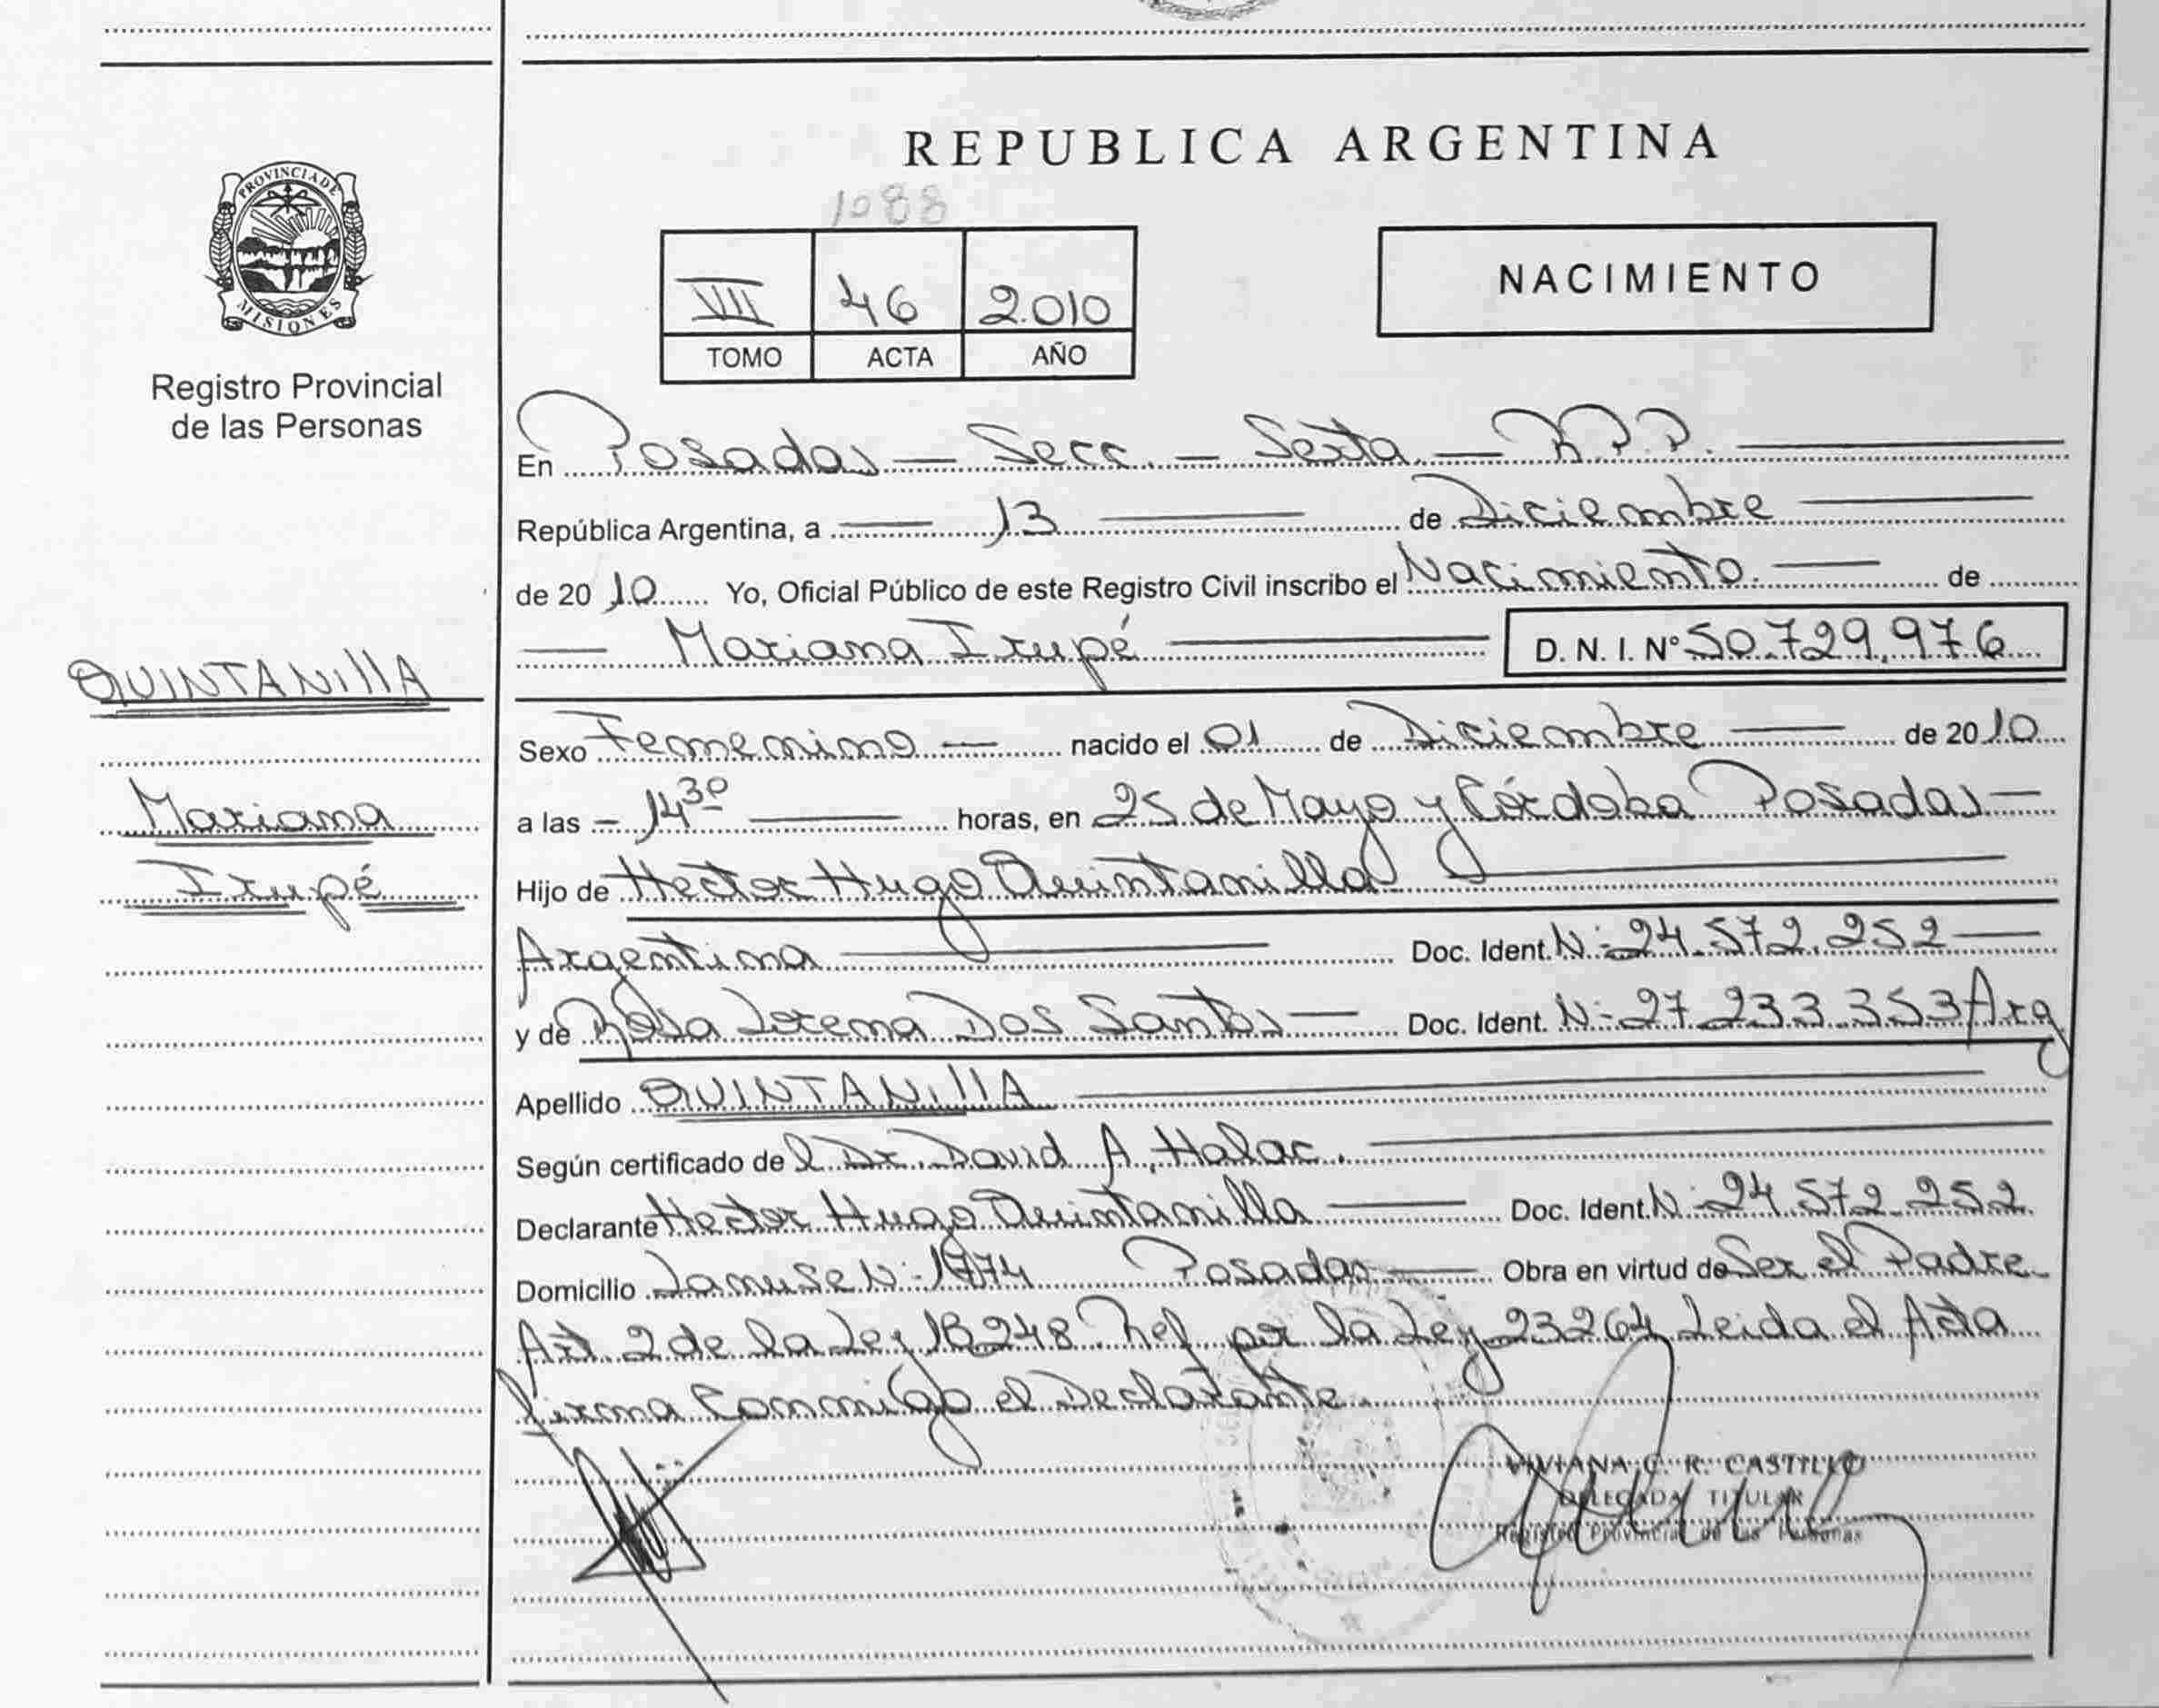 REPUBLICA ARGENTINA
PROVINCIA DE
MISIONES
Registro Provincial
de las Personas
1088
VII 46 2.010
TOMO ACTA AÑO
NACIMIENTO
En Posadas — Secc. — Sexta — R.P.P.
República Argentina, a — 13 — de Diciembre
de 20 10 Yo, Oficial Público de este Registro Civil inscribo el Nacimiento. — de
— Mariana Irupé — D. N. I. Nº 50.729.976
QUINTANIllA
Mariana
Irupé
Sexo Femenino — nacido el 01 de Diciembre — de 20 10
a las — 14 30 — horas, en 25 de Mayo y Córdoba Posadas —
Hijo de Hector Hugo Quintanilla
Argentina — Doc. Ident. N:- 24.572.252 —
y de Rosa Lorena Dos Santos — Doc. Ident. N:- 27.233.353 Arg
Apellido QUINTANIllA
Según certificado del Dr. David A. Halac.
Declarante Hector Hugo Quintanilla — Doc. Ident. N:- 24.572.252
Domicilio Lanuse N:- 1774 Posadas — Obra en virtud de Ser el Padre
Art 2 de la Ley 18248 Ref por la Ley 23264 Leida el Acta
firma Conmigo el Declarante.
VIVIANA C. R. CASTILLO
DELEGADA TITULAR
Registro Provincial de las Personas